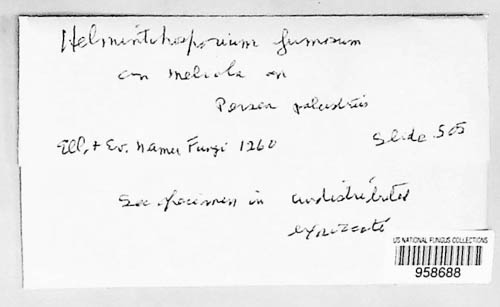 Helminthosporium fumosum
on Meliola on
Persea palustris
Ell. + Ev. Namer Fungi 1260
Slide 505
See specimen in undistributed
exsiccati
US NATIONAL FUNGUS COLLECTIONS
958688